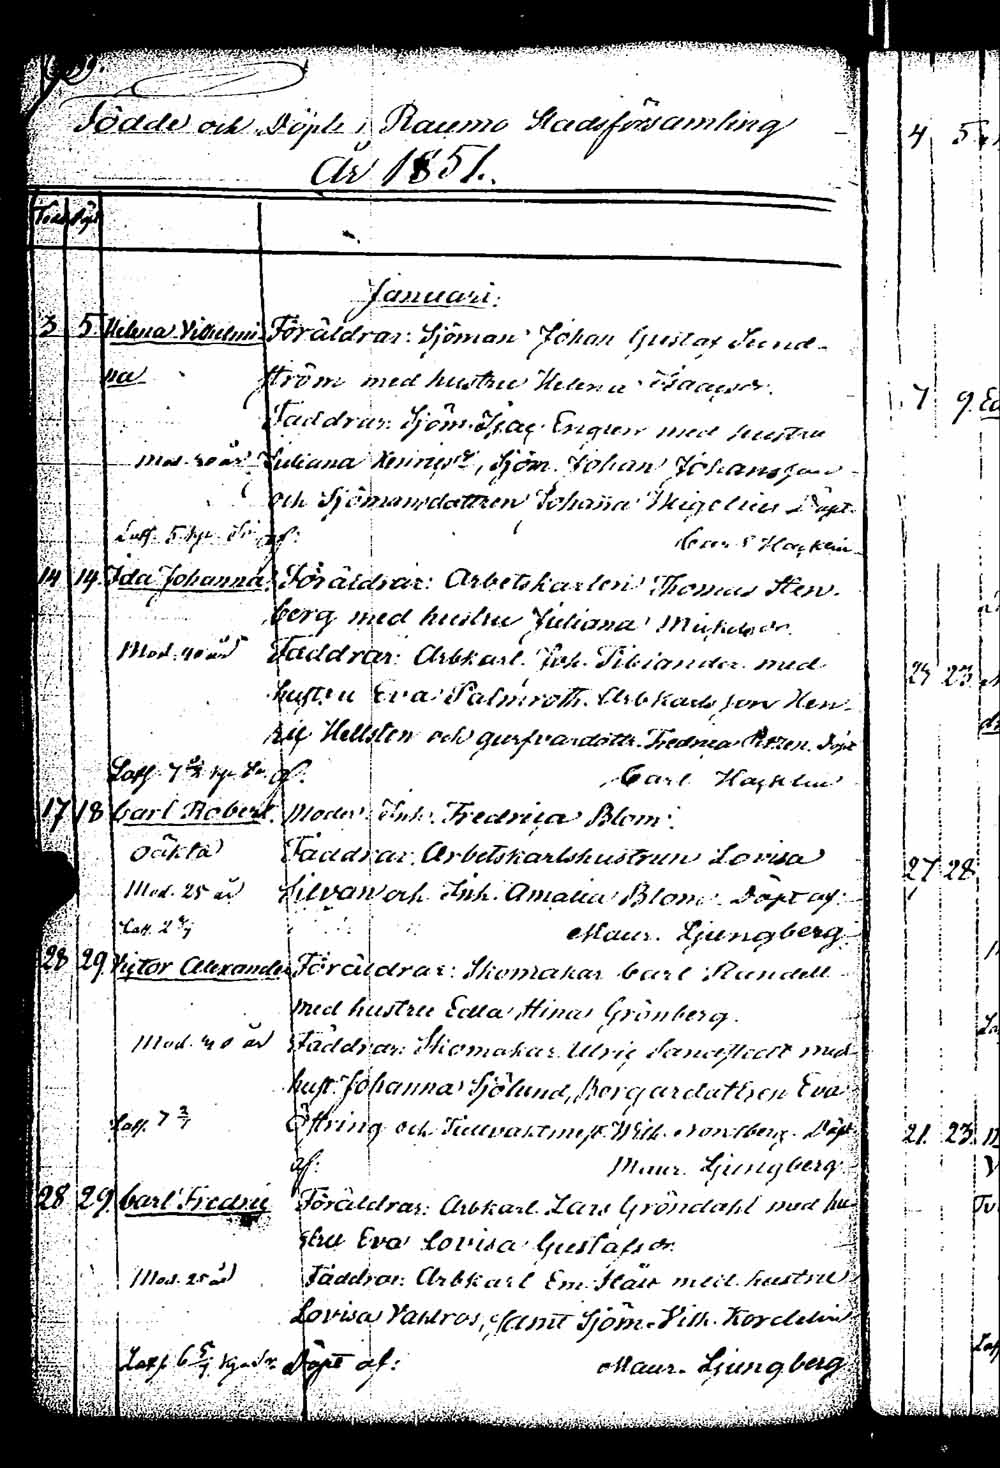 Födde och Döpte i Raumo Stadsförsamling
År 1851.
Född Döpt
Januari:
3 5 Helena Vilhelmi- Föräldrar: Sjöman Johan Gustaf Sund-
na ström med hustru Helena Isacsdr.
Faddrar: Sjöm. Isac Engren med hustru
Mod. år Juliana Henricsdr, Sjöm. Johan Johansson
och Sjömansdottren Johanna Migelius Döpt
af: Carl Hacklin
14 14 Ida Johanna Föräldrar: Arbetskarlen Thomas Sten-
berg med hustru Juliana Mickelsdr.
Mod. 40 år Faddrar: Arbkarl. Joh. Sibiander med
hustru Eva Palmroth. Arbkarlsson Hen-
ric Hellsten och Fredrica Döpt
af: Carl Hacklin
17 18 Carl Robert. Moder: Inh. Fredrica Blom.
Oäkta Faddrar: Arbetskarlshustrun Lovisa
Mod. 25 år Silvan och Inh. Amalia Blom. Döpt af:
Maur. Ljungberg
28 29 Victor Alexander Föräldrar: Skomakar Carl Rundell
med hustru Edla Stina Grönberg.
Mod. år Faddrar: Skomakar Ulric Sandstedt med
hust. Johanna Sjölund, Borgardattren Eva
Östring och Tullvaktmest. Wilh. Döpt
af: Maur. Ljungberg
28 29 Carl Fredric Föräldrar: Arbkarl. Lars Gröndahl med hu-
stru Eva Lovisa Gustafsdr.
Mod. 25 år Faddrar: Arbkarl Em. med hustru
Lovisa Vahlros, samt Sjöm. Vilh. Kordelin
Döpt af: Maur. Ljungberg
4 5
7 9
23 23
27 28
21. 23